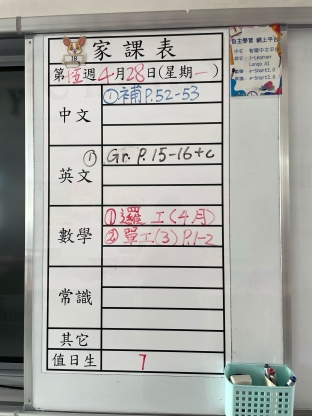 家課表
18
第 週4月28日(星期一)
中文 ①補P.52-53
英文 ① Gr. P.15-16+c
數學 ①邏工(4月)
②單工(3) P.1-2
常識
其它
值日生 7
自主學習 網上平台